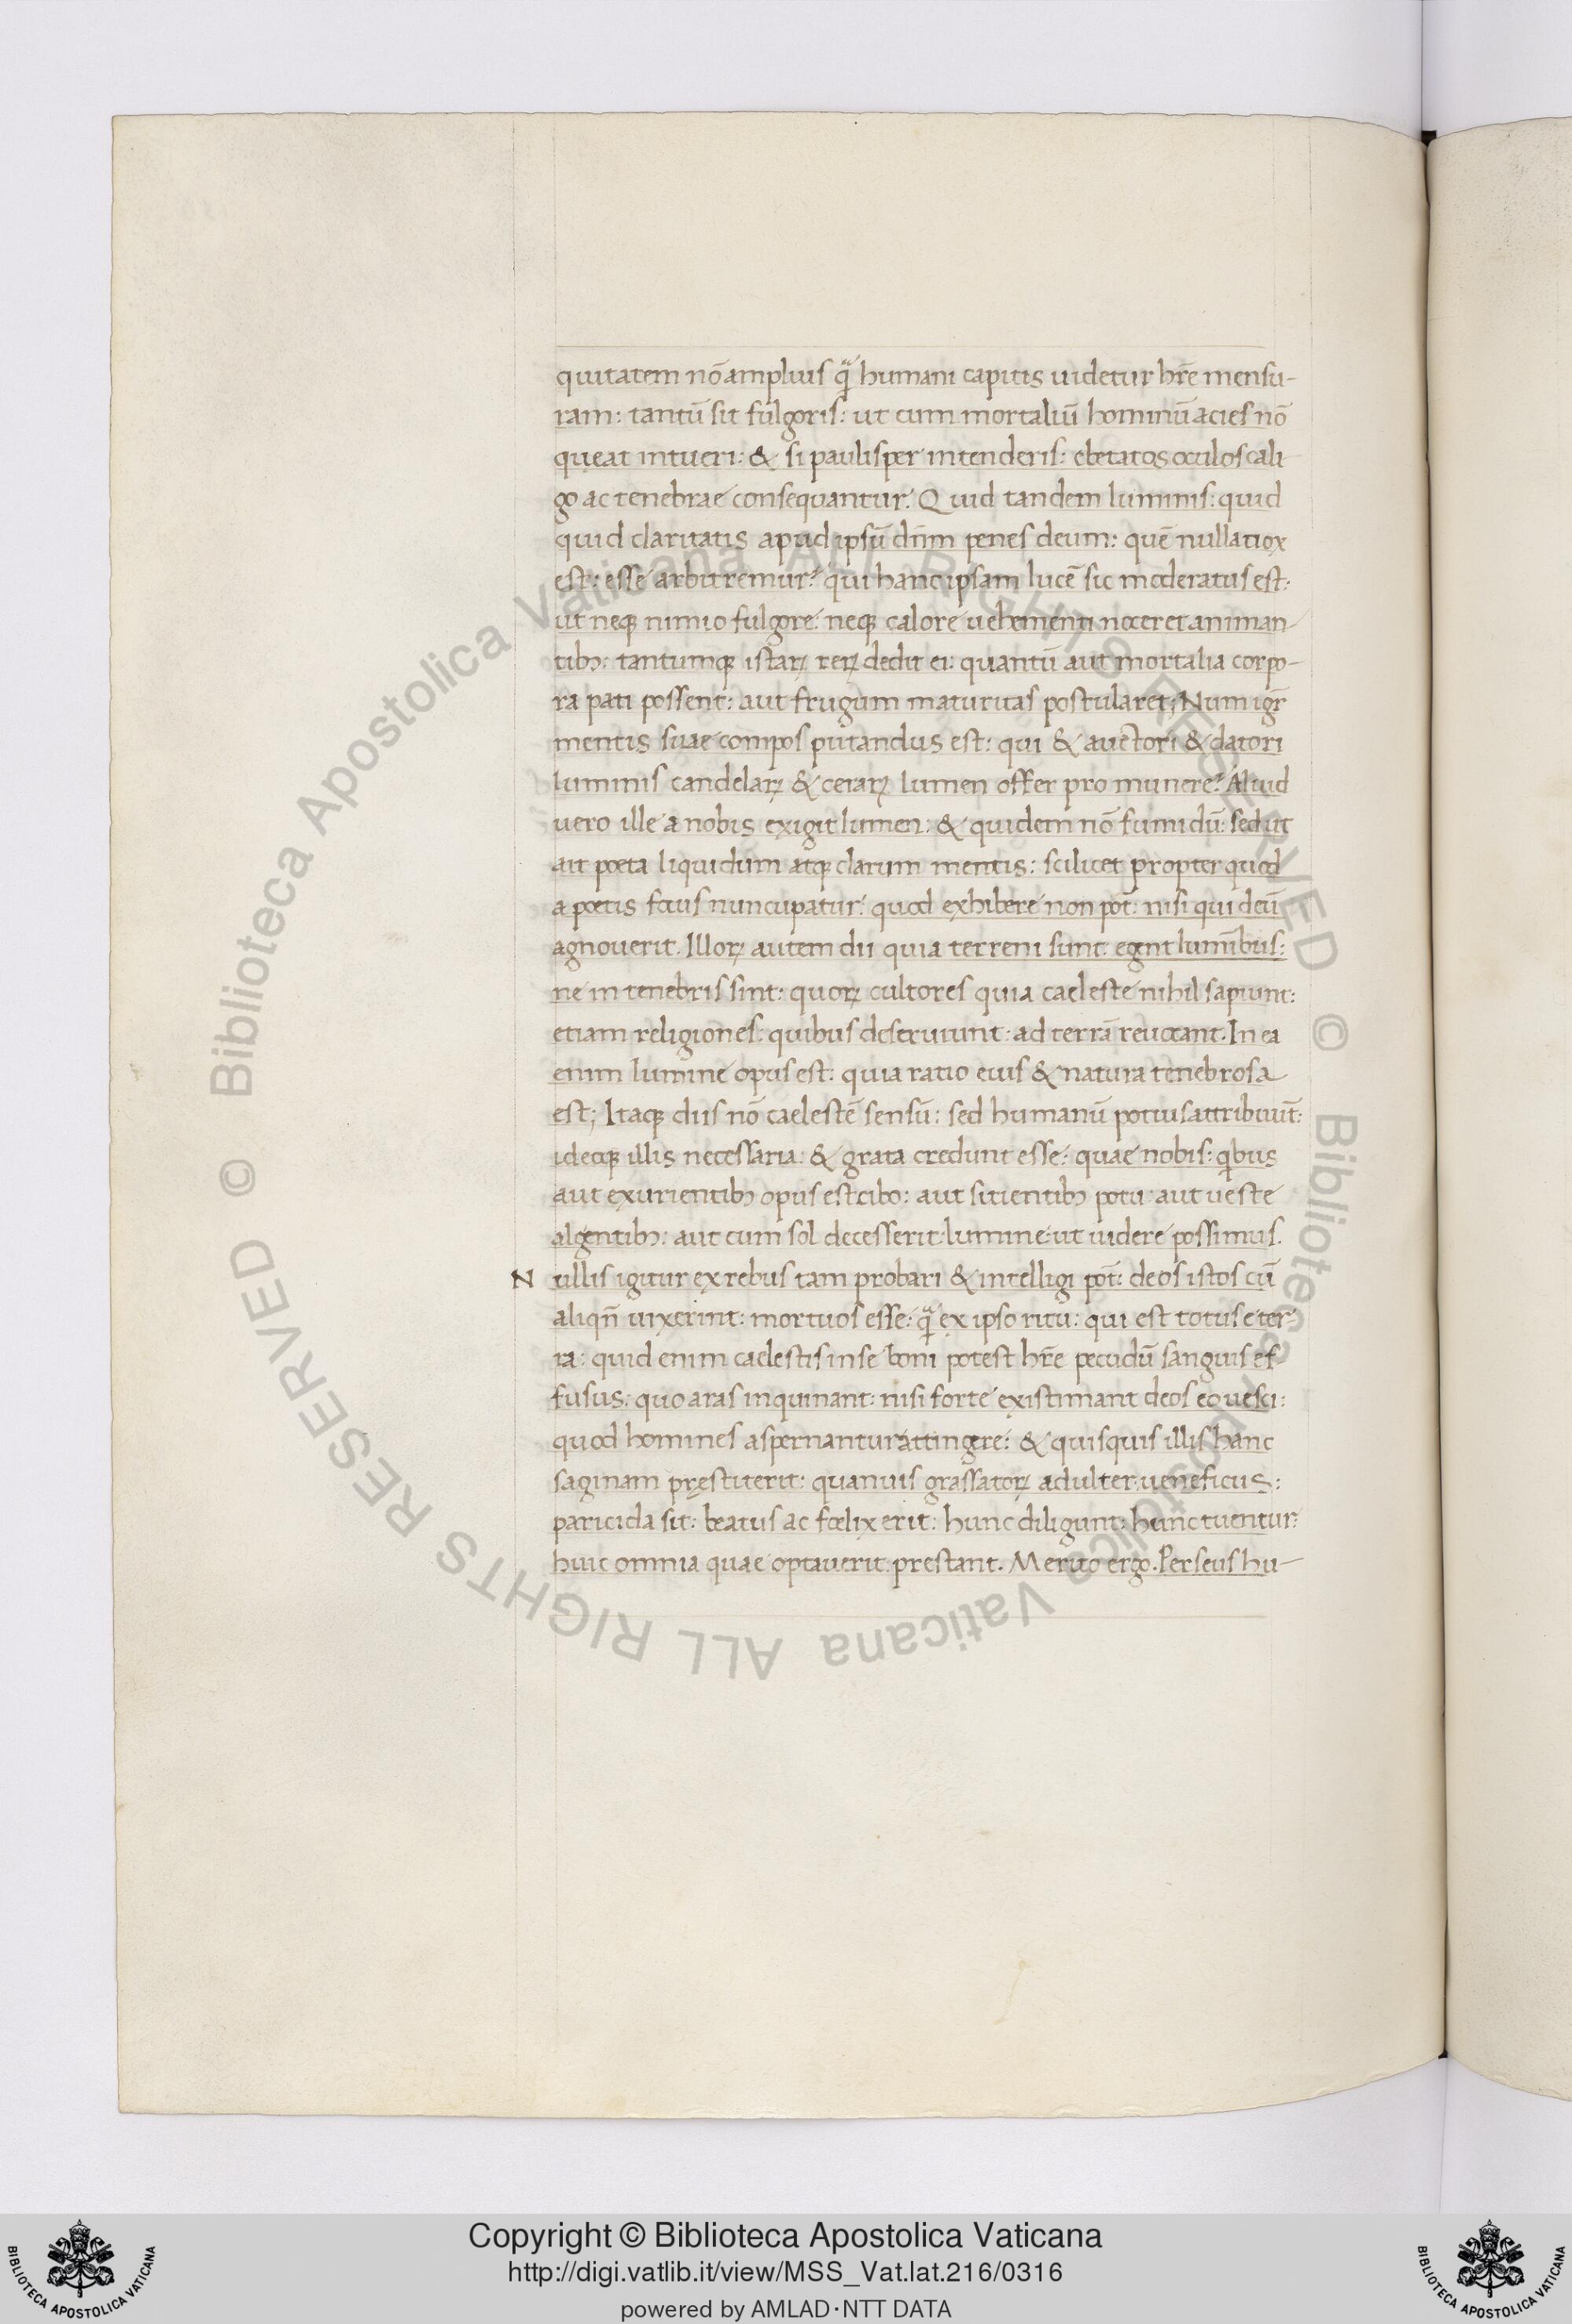 quitatem nō amplius qᷓ humani capitis uidetur hr̄e mensu-
ram: tantū sit fulgoris: ut cum mortaliū hominū acies nō
queat intueri: & si paulisper intenderis: ebetatos oculos cali
go ac tenebrae consequantur. Quid tandem luminis: quid
quid claritatis apud ipsū dn̄m penes deum: quē nulla tiox
est: esse arbitremur? qui hanc ipsam lucē sic moderatus est:
ut neqꝫ nimio fulgore: neqꝫ calore uehementi noceret animan-
tibꝫ: tantumqꝫ istaꝝ reꝝ dedit ei: quantū aut mortalia corpo-
ra pati possent: aut frugum maturitas postularet; Num igr̄
mentis suae compos putandus est: qui & auctori & datori
luminis candelaꝝ & ceraꝝ lumen offer pro munere? Aliud
uero ille a nobis exigit lumen: & quidem nō fumidū: sed ut
ait poeta liquidum atqꝫ clarum mentis: scilicet propter quod
a poetis fotus nuncupatur: quod exhibere non pōt: nisi qui deū
agnouerit. Illoꝝ autem dii quia terreni sunt: egent luminibus:
ne in tenebris sint: quoꝝ cultores quia caeleste nihil sapiunt:
etiam religiones: quibus deseruiunt: ad terrā reuocant. In ea
enim lumine opus est: quia ratio eius & natura tenebrosa
est; Itaqꝫ diis nō caelestē sensū: sed humanū potius attribuūt:
ideoqꝫ illis necessaria: & grata credunt esse: quae nobis: qibus
aut exurientibꝫ opus est cibo: aut sitientibꝫ potu: aut ueste
algentibꝫ: aut cum sol decesserit: lumine: ut uidere possimus.
N ullis igitur ex rebus tam probari & intelligi pōt: deos istos cū
aliqn̄ uixerint: mortuos esse: qᷓ ex ipso ritu: qui est totus e ter-
ra: quid enim caelestis in se boni potest hr̄e pecudū sanguis ef
fusus: quo aras inquinant: nisi forte existimant deos eo uesci:
quod homines aspernantur attingere: & quisquis illis hanc
saginam pręstiterit: quamuis grassatoꝝ adulter: ueneficus:
paricida sit: beatus ac foelix erit: hunc diligunt: hunc tuentur:
huic omnia quae optauerit: prestant. Merito ergo. Perseus hu-
Copyright © Biblioteca Apostolica Vaticana
http://digi.vatlib.it/view/MSS_Vat.lat.216/0316
powered by AMLAD·NTT DATA
BIBLIOTECA APOSTOLICA VATICANA
BIBLIOTECA APOSTOLICA VATICANA
© Biblioteca Apostolica Vaticana ALL RIGHTS RESERVED © Biblioteca Apostolica Vaticana ALL RIGHTS RESERVED